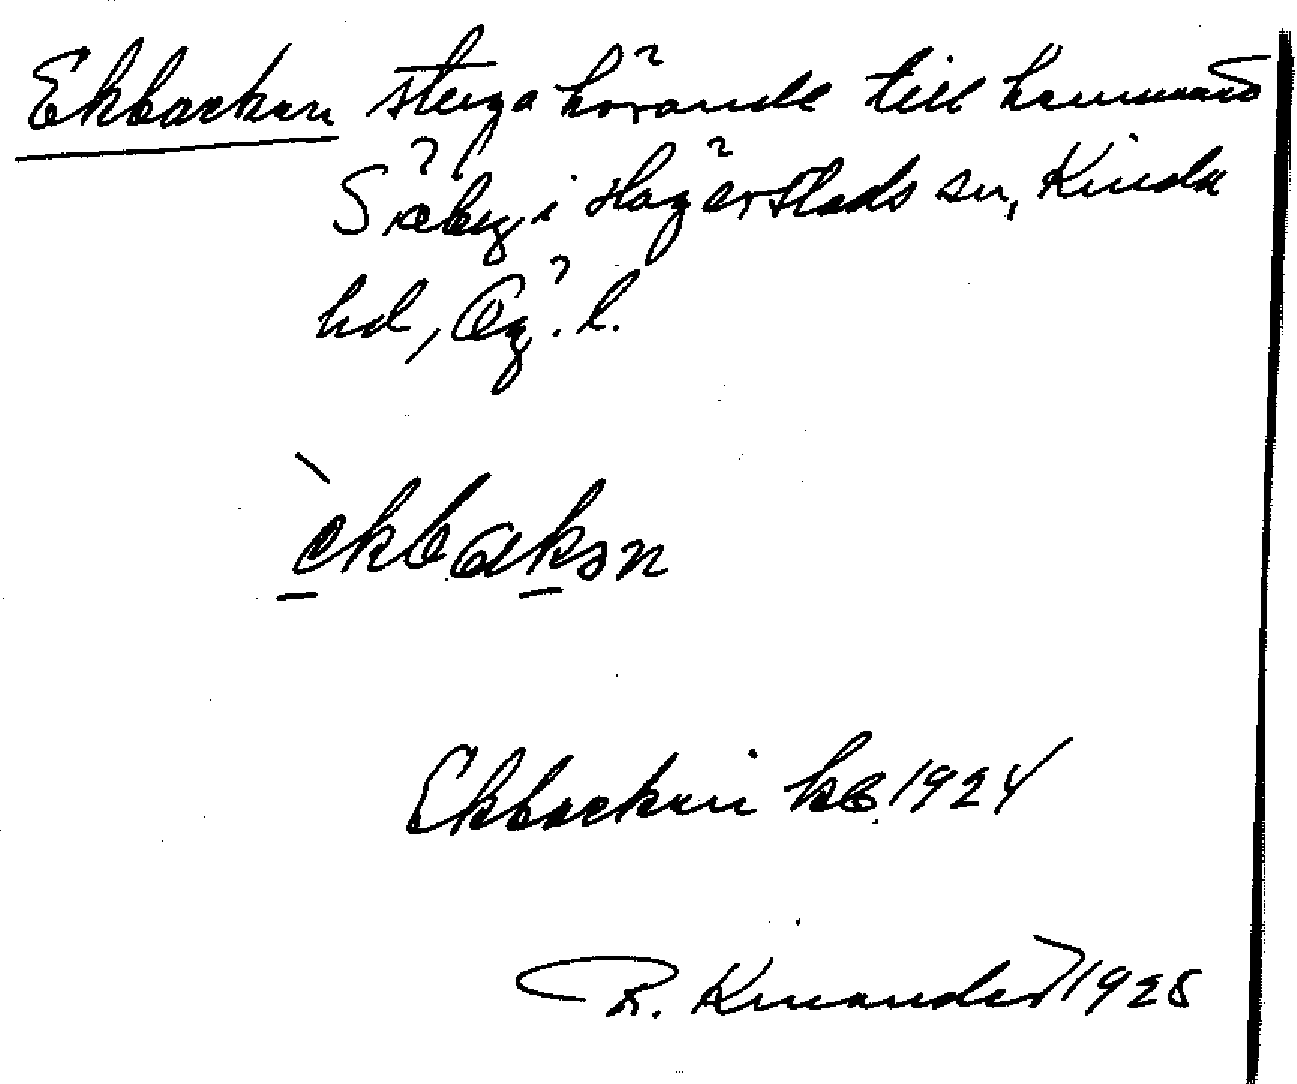 Ekbacken stuga hörande till hemmanet
Säby i Hägerstads sn, Kinda
hd, Ög. l.
èkbakən
Ekbacken kb 1924
R. Kinander 1928